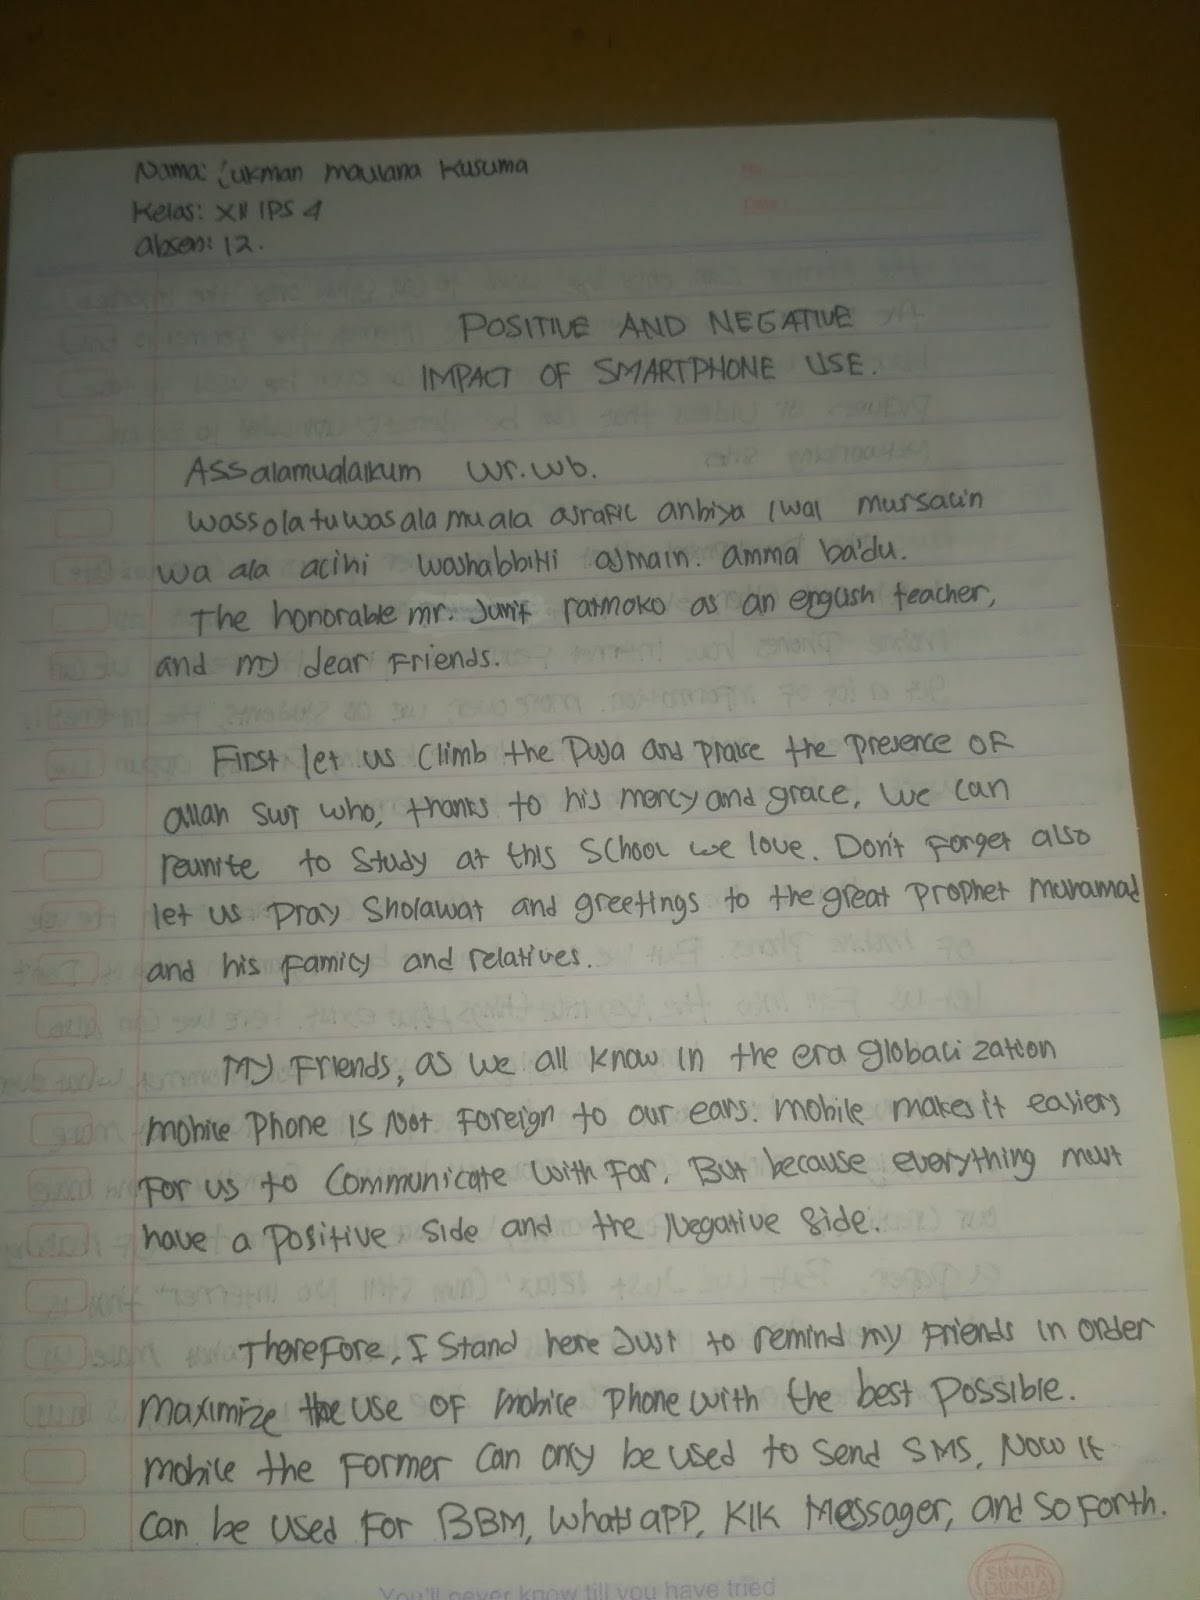 Nama: Lukman Maulana Kusuma
Kelas: XII IPS 4
absen: 12.
No
Date
POSITIVE AND NEGATIVE
IMPACT OF SMARTPHONE USE.
Assalamualaikum wr.wb.
wassolatuwasalamuala asrafil anbiya iwal mursalin
wa ala alihi washabbihi ajmain. amma ba'du.
The honorable mr. Junit ratmoko as an english teacher,
and my dear Friends.
First let us Climb the Puja and Praise the Presence OF
allah swt who, thanks to his mercy and grace, we can
reunite to Study at this SChool we love. Don't Forget also
let us pray Sholawat and greetings to the great Prophet Muhamad
and his Family and relatives.
My Friends, as we all know in the era globalization
mobile Phone is Not Foreign to our ears. mobile makes it easiers
For us to Communicate with Far. But because everything must
have a Positive Side and the Negative Side.
Therefore, I Stand here Just to remind my Friends in order
Maximize the use OF mobile Phone with the best Possible.
Mobile the Former Can only be used to Send SMS, Now it
Can be used For BBM, WhatsaPP, KIK Messager, and So Forth.
You'll never know till you have tried
SINAR
DUNIA